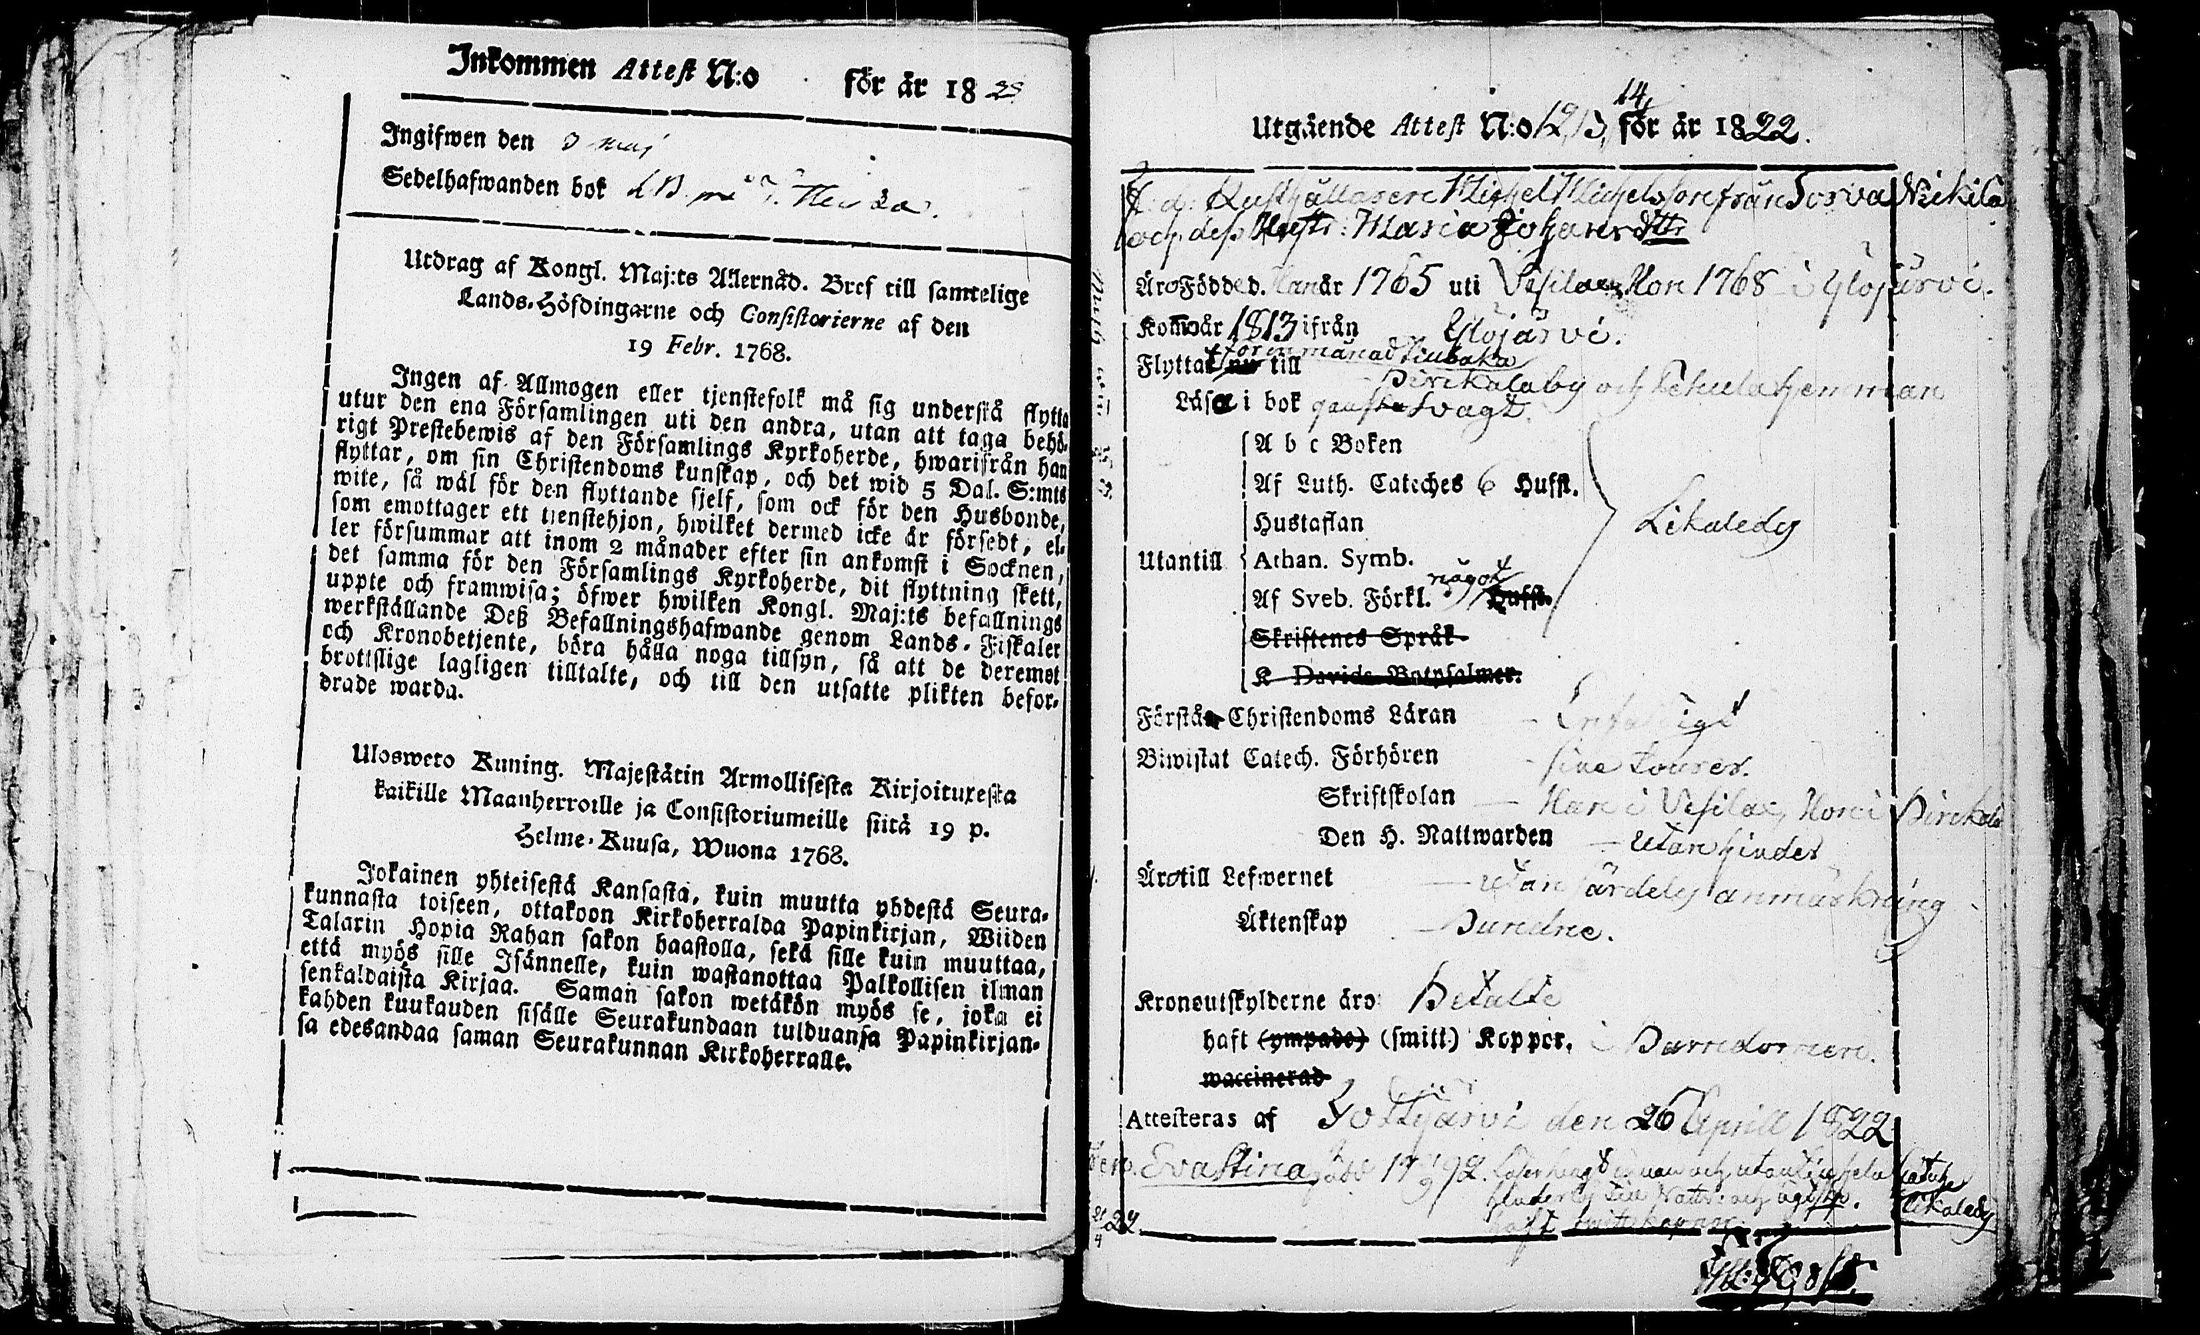 Inkommen Attest N:o för år 18
Ingifwen den 3 maj
Sedelhafwanden bok
Utdrag af Kongl. Maj:ts Allernåd. Bref till samtelige
Lands-Höfdingarne och Consistorierne af den
19 Febr. 1768.
Ingen af Allmogen eller tjenstefolk må sig understå flytta
utur den ena Församlingen uti den andra, utan att taga behö-
rigt Prestebewis af den Församlings Kyrkoherde, hwarifrån han
flyttar, om sin Christendoms kunskap, och det wid 5 Dal. S:mts
wite, så wäl för den flyttande sjelf, som ock för den Husbonde,
som emottager ett tjenstehjon, hwilket dermed icke är försedt, el-
ler försummar att inom 2 månader efter sin ankomst i Socknen,
det samma för den Församlings Kyrkoherde, dit flyttning skett,
uppte och framwisa; öfwer hwilken Kongl. Maj:ts befallnings
werkställande Deß Befallningshafwande genom Lands-Fiskaler
och Kronobetjente, böra hålla noga tillsyn, så att de deremot
brottslige lagligen tilltalte, och till den utsatte plikten befor-
drade warda.
Ulosweto Kuning. Majestätin Armollisesta Kirjoituxesta
kaikille Maanherroille ja Consistoriumeille siitä 19 p.
Helme-Kuusa, Wuona 1768.
Jokainen yhteisestä Kansasta, kuin muutta yhdestä Seura-
kunnasta toiseen, ottakoon Kirkoherralda Papinkirjan, Wiiden
Talarin Hopia Rahan sakon haastolla, sekä sille kuin muuttaa,
että myös sille Isännelle, kuin wastanottaa Palkollisen ilman
senkaldaista Kirjaa. Saman sakon wetäkön myös se, joka ei
kahden kuukauden sisälle Seurakundaan tulduansa Papinkirjan-
sa edesandaa saman Seurakunnan Kirkoherralle.
14,
Utgående Attest N:o 12, 13, för år 1822.
f.d. Rusthållaren Michel Michelsson från Sorva Nickilä
och dess Hustr: Maria Johansdttr
Äro Födde d. Han år 1765 uti Vesilax, Hon 1768 i Ylöjärvi.
Kommo år 1813 ifrån Ylöjärvi.
för en månad tillbaka
Flyttat nu till Pirckala by och hemman
Läsa i bok ganska svagt.
A b c Boken
Af Luth. Cateches 6 Hufst.
Hustaflan
Likaledes
Utantill Athan. Symb.
något
Af Sveb. Förkl. Hufst.
Skriftenes Språk
K Davids Botpsalmer.
Förstå Christendoms Läran — Enfaldigt
Biwistat Catech. Förhören — sine tourer.
Skriftskolan — Han i Vesilax, Hon i Pirckala
Den H. Nattwarden — utan hinder
Äro till Lefwernet — utan särdeles anmärkning
Äktenskap — Bundne.
Kronoutskylderne äro Betalte
haft (ympade) (smitt) Koppor, i Barndomen.
waccinerad
Attesteras af Yottjärvi den 26 April 1822
Eva Stina född 1792.
haft
likaledes